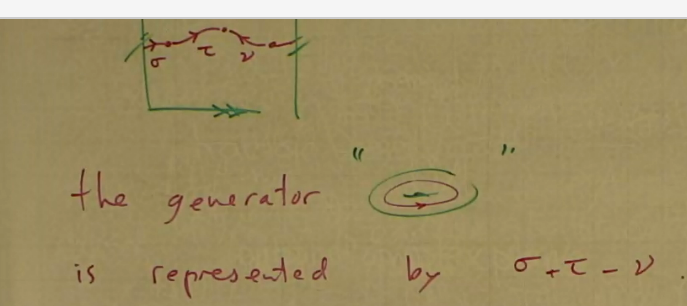 σ τ ν
the generator " "
is represented by σ + τ - ν.